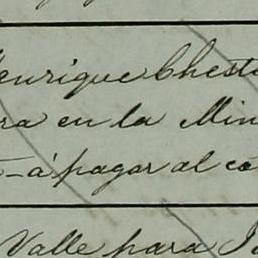 Henrique Chest
ra en la Min
- á pagar al co
Valle para